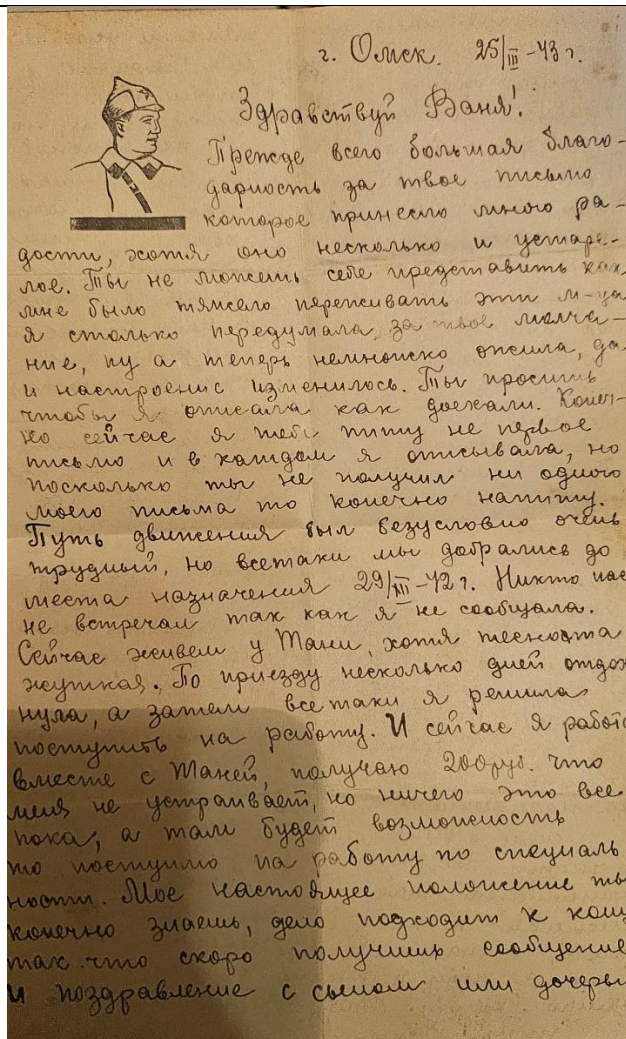 г. Омск. 25/III-43 г.
Здравствуй Ваня!
Прежде всего большая благо-
дарность за твое письмо
которое принесло много ра-
дости, хотя оно несколько и устаре-
лое. Ты не можешь себе представить как
мне было тяжело переживать эти м-ца
я столько передумала за твое молча-
ние, ну а теперь немножко ожила, да
и настроение изменилось. Ты просишь
чтобы я описала как доехали. Конеч-
но сейчас я тебе пишу не первое
письмо и в каждом я описывала, но
поскольку ты не получил ни одного
моего письма то конечно напишу.
Путь движения был безусловно очень
трудный, но всетаки мы добрались до
места назначения 29/XII-42 г. Никто нас
не встречал так как я не сообщала.
Сейчас живем у Тани, хотя теснота
жуткая. По приезду несколько дней отдох
нула, а затем все таки я решила
поступить на работу. И сейчас я работа
вместе с Таней, получаю 200 руб. что
меня не устраивает, но ничего это все
пока, а там будет возможность
то поступлю на работу по специаль
ности. Мое настоящее положение ты
конечно знаешь, дело подходит к конц
так что скоро получишь сообщение
и поздравление с сыном или дочерью